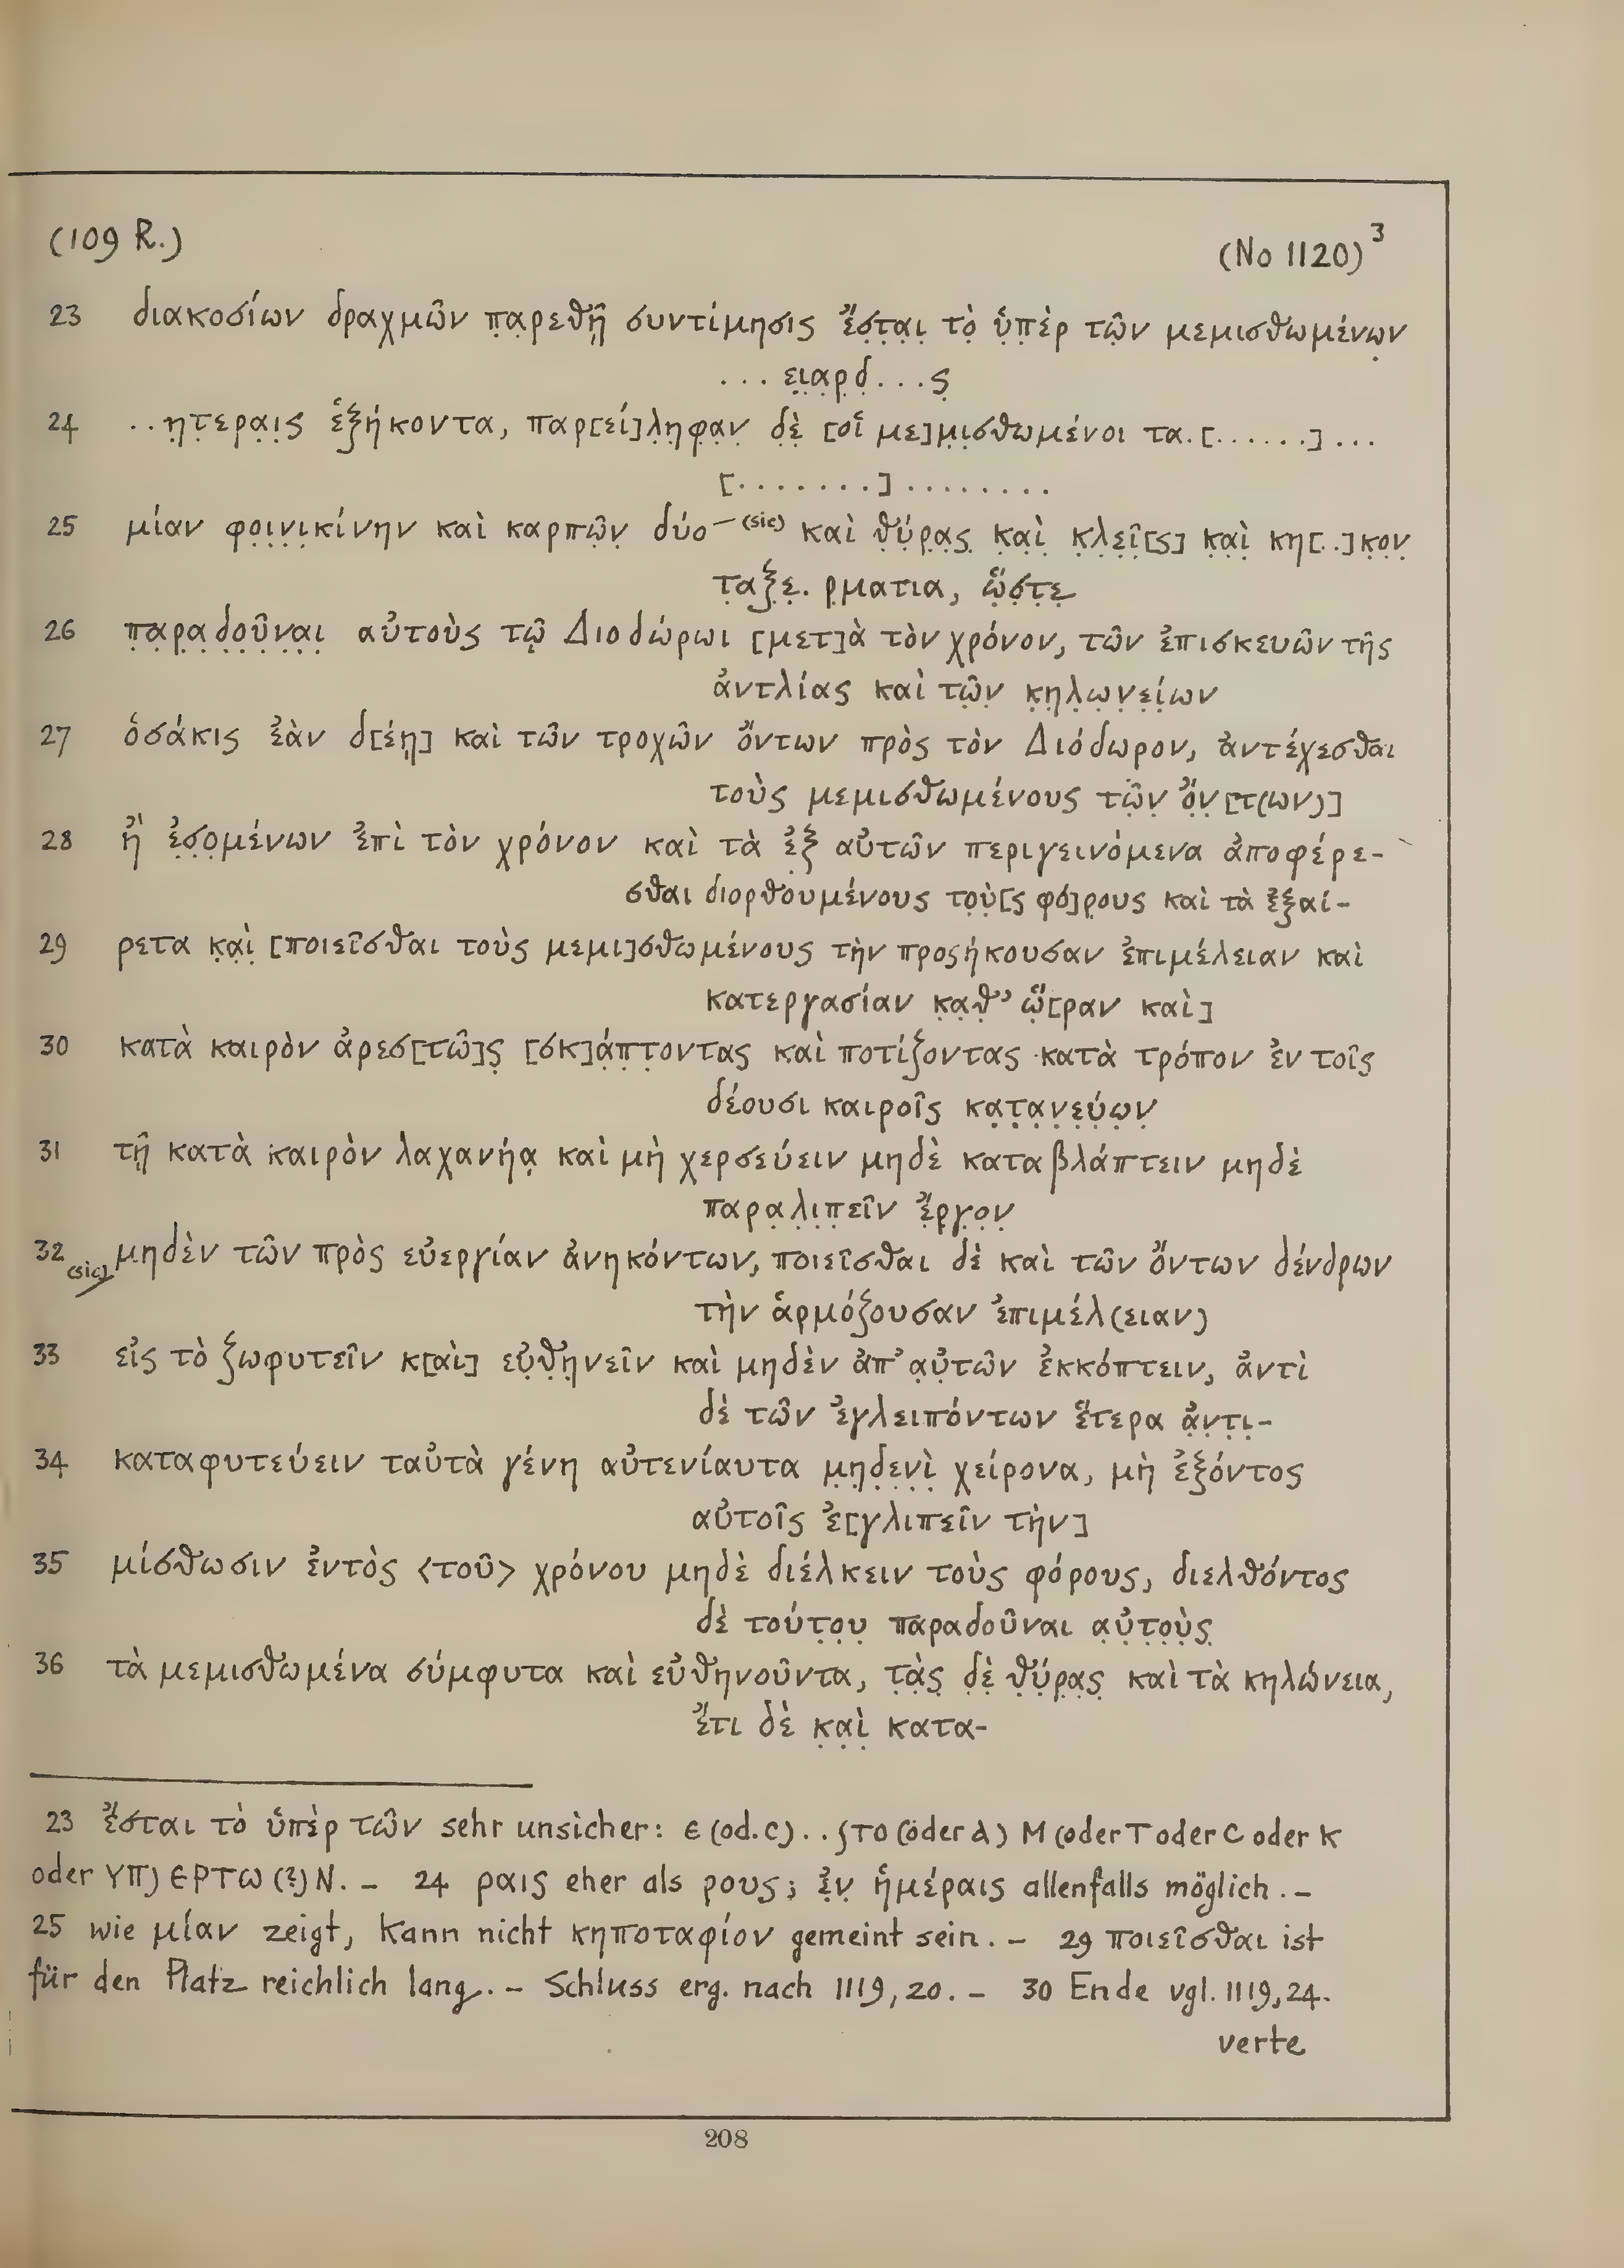 (109 R.)
(No 1120)³
23 διακοσίων δραχμῶν π̣α̣ρεθῇ̣ συντίμησις ἔ̣σ̣τ̣α̣ι̣ τὸ̣ ὑ̣π̣ὲρ τῶ̣ν μεμισθωμένω̣ν
... ε̣ι̣α̣ρ̣δ̣...ς̣
24 ..η̣τ̣ερ̣α̣ι̣ς ἑξήκοντα, παρ[εί]λ̣η̣φ̣α̣ν̣ δ̣ὲ̣ [οἱ με]μ̣ι̣σ̣θωμένοι τα.[......]...
[.......]........
25 μίαν φο̣ι̣ν̣ι̣κίνην καὶ καρπῶ̣ν̣ δύο – (sic) καὶ θ̣ύ̣ρ̣α̣ς̣ κ̣α̣ὶ̣ κ̣λ̣ε̣ῖ̣[ς] κ̣α̣ὶ̣ κη[..]κ̣ο̣ν̣
τ̣α̣ξ̣ε̣. ρ̣ματια, ὥ̣σ̣τ̣ε̣
26 π̣α̣ρ̣α̣δ̣ο̣ῦ̣ν̣α̣ι̣ αὐτοὺς τῷ̣ Διοδώρωι [μετ]ὰ τὸν χρόνον, τῶν ἐπισκευῶν τῆς
ἀντλίας καὶ τῶ̣ν̣ κ̣η̣λ̣ω̣ν̣ε̣ί̣ων
27 ὁσάκις ἐὰν δ[έῃ] καὶ τῶν τροχῶν ὄντων πρὸς τὸν Διόδωρον, ἀντέχεσθαι
τοὺς μεμισθωμένους τῶ̣ν̣ ὄ̣ν̣[τ(ων)]
28 ἢ ἐ̣σ̣ο̣μένων ἐπὶ τὸν χρόνον καὶ τὰ ἐξ αὐτῶν περιγεινόμενα ἀποφέρε-
σθαι διορθουμένους το̣ὺ̣[ς φό]ρ̣ους καὶ τὰ ἐξαί-
29 ρετα κ̣α̣ὶ̣ [ποιεῖσθαι τοὺς μεμι]σθωμένους τὴν προςήκουσαν ἐπιμέλειαν καὶ
κατεργασίαν κ̣α̣θ̣’ ὥ̣[ραν καὶ]
30 κατὰ καιρὸν ἀρεσ[τῶ]ς̣ [σκ]ά̣π̣τ̣οντας καὶ ποτίζοντας κατὰ τρόπον ἐν τοῖς
δέουσι καιροῖς κ̣α̣τ̣α̣ν̣ε̣ύ̣ω̣ν̣
31 τῇ κατὰ καιρὸν λαχανήᾳ καὶ μὴ χερσεύειν μηδὲ καταβλάπτειν μηδὲ
παρα̣λ̣ι̣π̣εῖν ἔ̣ρ̣γ̣ο̣ν̣
32 (sic) μηδὲν τῶν πρὸς εὐεργίαν ἀνηκόντων, ποιεῖσθαι δὲ καὶ τῶν ὄντων δένδρων
τὴν ἁρμόζουσαν ἐπιμέλ(ειαν)
33 εἰς τὸ ζωφυτεῖν κ[αὶ] εὐ̣θ̣η̣νεῖν καὶ μηδὲν ἀπ’ α̣ὐ̣τῶν ἐκκόπτειν, ἀντὶ
δὲ τῶν ἐγλειπόντων ἕτερα ἀ̣ν̣τ̣ι̣-
34 καταφυτεύειν ταὐτὰ γένη αὐτενίαυτα μ̣η̣δ̣ε̣ν̣ὶ̣ χείρονα, μὴ ἐξόντος
αὐτοῖς ἐ[γλιπεῖν τὴν]
35 μίσθωσιν ἐντὸς <τοῦ> χρόνου μηδὲ διέλκειν τοὺς φόρους, διελθόντος
δὲ τούτ̣ο̣υ̣ παραδοῦναι α̣ὐ̣τ̣ο̣ὺ̣ς̣
36 τὰ μεμισθωμένα σύμφυτα καὶ εὐθηνοῦντα, τ̣ὰ̣ς̣ δ̣ὲ̣ θ̣ύ̣ρ̣α̣ς̣ καὶ τὰ κηλώνεια,
ἔτι δὲ κ̣α̣ὶ̣ κατα-
23 ἔσται τὸ ὑπὲρ τῶν sehr unsicher: ϵ (od. c) . . ʃΤΟ (oder λ) Μ (oder Τ oder C oder Κ
oder ΥΠ) ЄΡΤω (?) Ν. – 24 ραις eher als ρους; ἐ̣ν̣ ἡμέραις allenfalls möglich. –
25 wie μίαν zeigt, kann nicht κηποταφίον gemeint sein. – 29 ποιεῖσθαι ist
für den Platz reichlich lang. – Schluss erg. nach 1119, 20. – 30 Ende vgl. 1119, 24.
verte
208